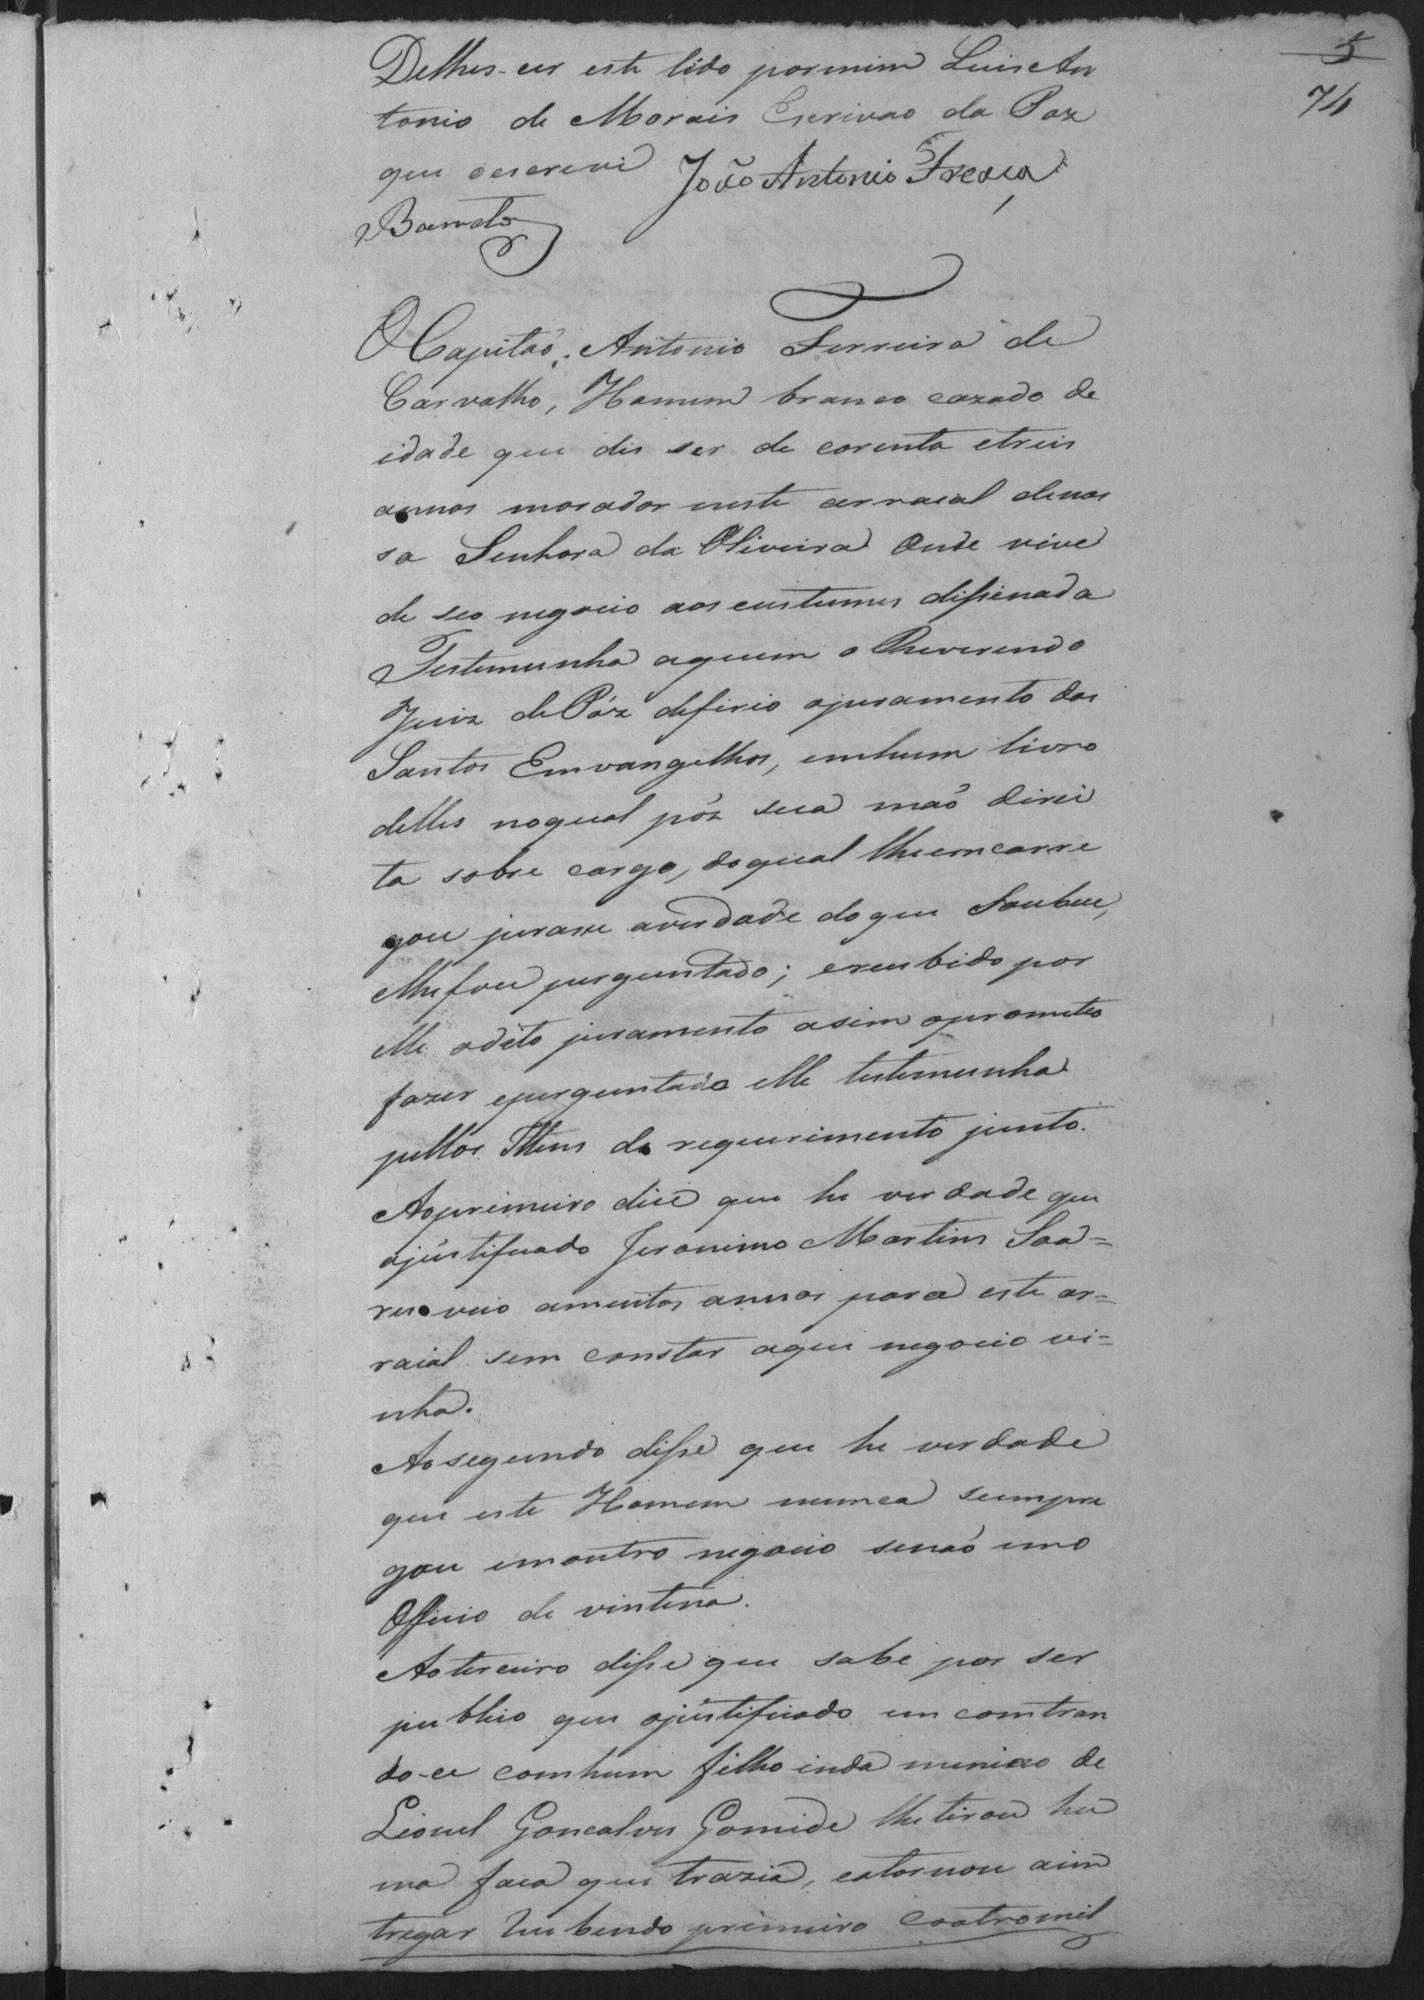 5
74
Delhes-cer este lido por mim Luis An
tonio de Morais Escrivao da Paz
que oescrevi João Antonio
Barreto
O Capitaõ, Antonio Ferreira de
Carvalho, Homem branco cazado de
idade que dis ser de corenta etreis
annos morador neste arraial denos
sa Senhora da Oliveira Onde vive
de seo negocio aos custumes dissenada
Testemunha aquem o Reverendo
Juiz de Páz defirio ojuramento dos
Santos Emvangelhos, emhum livro
delles noqual pós sua maõ direi
ta sobre cargo, doqual lheemcarre
gou jurasse averdade doque Soubece,
elhefoce perguntado; erecebido por
elle odito juramento asim oprometeo
fazer eperguntado elle testemunha
pellos Ittens do requerimento junto.
Aoprimeiro dice que he verdade que
ojustificado Jeronimo Martins Soa=
res veio amuitos annos para este ar=
raial sem constar aque negocio vi=
nha.
Aosegundo disse que he verdade
que este Homem nunca seempre
gou emoutro negocio senaõ emo
Officio de vintena.
Aoterceiro disse que sabe por ser
publico que ojustificado emcomtran
do-ce comhum filho inda menino de
Lionel Goncalves Gomide lhetirou hu
ma faca que trazia, eatornou aim
tregar recebendo primeiro coatromil